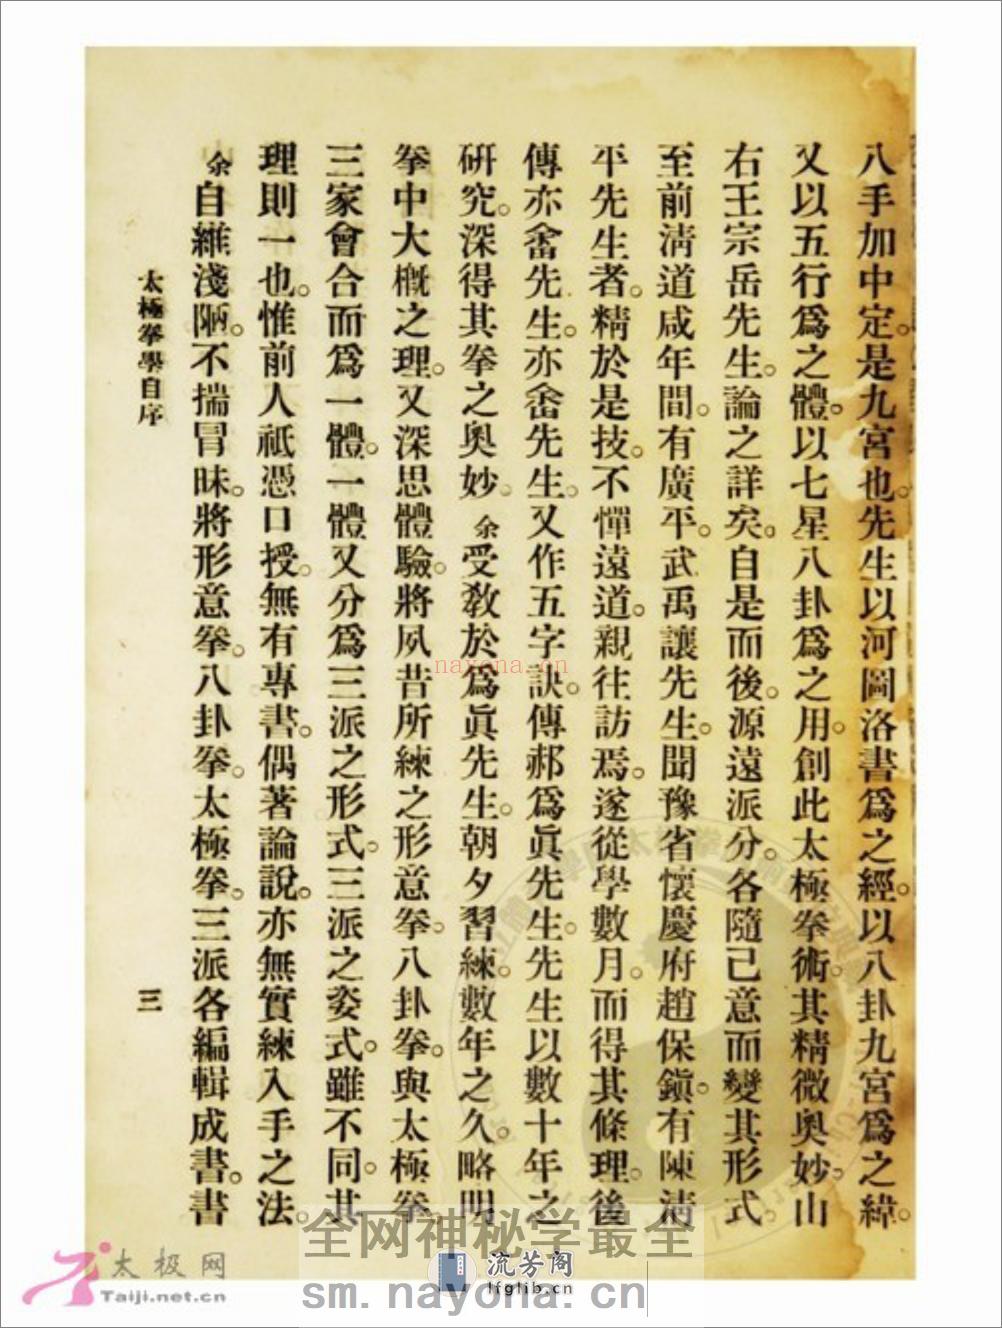 八手加中定。是九宮也。先生以河圖洛書爲之經。以八卦九宮爲之緯。
又以五行爲之體。以七星八卦爲之用。創此太極拳術。其精微奧妙。山
右王宗岳先生。論之詳矣。自是而後。源遠派分。各隨己意而變其形式。
至前淸道咸年間。有廣平。武禹讓先生。聞豫省懷慶府趙保鎭。有陳淸
平先生者。精於是技。不憚遠道。親往訪焉。遂從學數月。而得其條理。後
傳亦畬先生。亦畬先生。又作五字訣。傳郝爲眞先生。先生以數十年之
研究。深得其拳之奧妙。余受敎於爲眞先生。朝夕習練。數年之久。略明
拳中大槪之理。又深思體驗。將夙昔所練之形意拳。八卦拳。與太極拳。
三家會合而爲一體。一體又分爲三派之形式。三派之姿式。雖不同。其
理則一也。惟前人祇憑口授。無有專書。偶著論說。亦無實練入手之法。
余自維淺陋。不揣冒昧。將形意拳。八卦拳。太極拳。三派各編輯成書。書
太極拳學自序
三
nayona.cn
全网神秘学最全
sm. nayona. cn
流芳阁
lfglib.cn
太极网
Taiji.net.cn